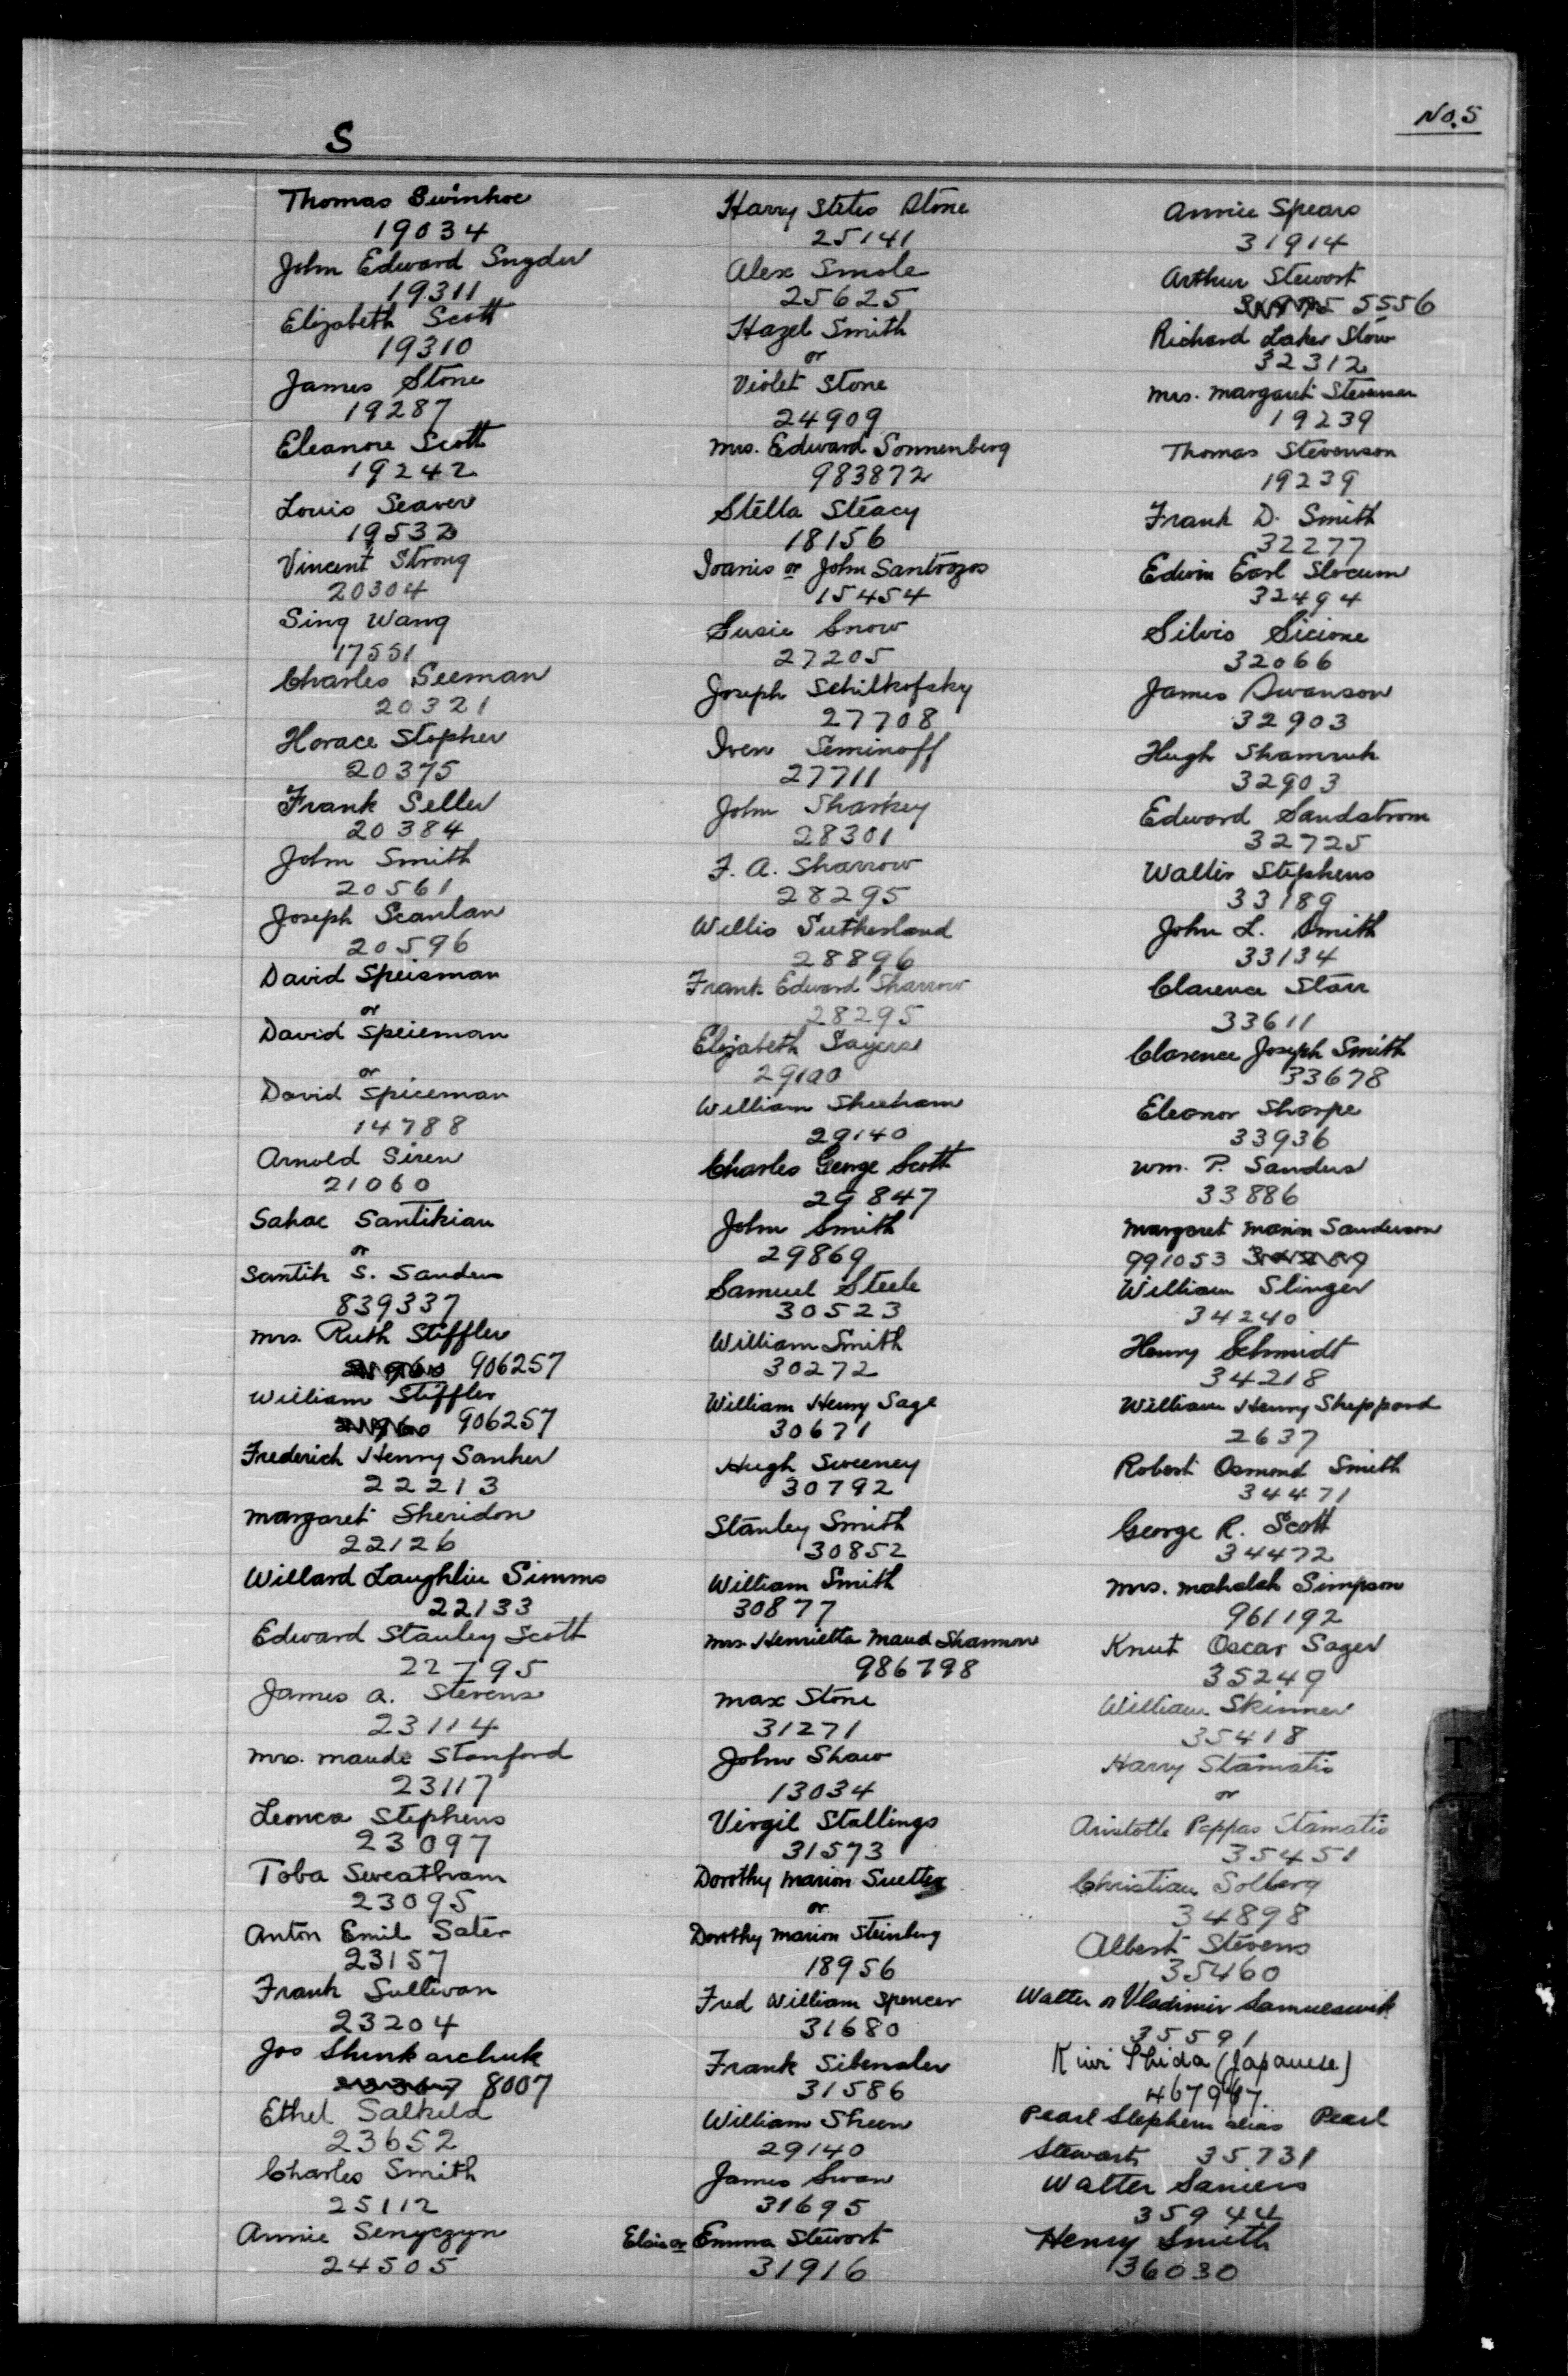 No. 5
S
Thomas Swinhoe
19034
John Edward Snyder
19311
Elizabeth Scott
19310
James Stone
19287
Eleanore Scott
19242
Louis Seaver
19532
Vincent Strong
20304
Sing Wang
17551
Charles Seeman
20321
Horace Stopher
20375
Frank Seller
20384
John Smith
20561
Joseph Scanlan
20596
David Speisman
or
David Speieman
or
David Spiceman
14788
Arnold Siren
21060
Sahac Santikian
or
Santik S. Sanders
839337
Mrs. Ruth Stiffler
906257
William Stiffler
906257
Frederick Henry Sanher
22213
Margaret Sheridon
22126
Willard Laughlin Simms
22133
Edward Stanley Scott
22795
James A. Stevens
23114
Mrs. Maude Stanford
23117
Leonca Stephens
23097
Toba Sweatham
23095
Anton Emil Sater
23157
Frank Sullivan
23204
Jos Shinkarchuk
8007
Ethel Salkeld
23652
Charles Smith
25112
Annie Senyczyn
24505
Harry Stetes Stone
25141
Alex Smole
25625
Hazel Smith
or
Violet Stone
24909
Mrs. Edward Sonnenberg
983872
Stella Steacy
18156
Ioanis or John Santrozos
15454
Susie Snow
27205
Joseph Schilkofsky
27708
Iven Seminoff
27711
John Sharkey
28301
F. A. Sharrow
28295
Willis Sutherland
28896
Frank Edward Sharrow
28295
Elizabeth Sayers
29100
William Sheeham
29140
Charles George Scott
29847
John Smith
29869
Samuel Steele
30523
William Smith
30272
William Henry Sage
30671
Hugh Sweeney
30792
Stanley Smith
30852
William Smith
30877
Mrs Henrietta Maud Shannon
986798
Max Stone
31271
John Shaw
13034
Virgil Stallings
31573
Dorothy Marion
or
Dorothy Marion Steinberg
18956
Fred William Spencer
31680
Frank Sibenaler
31586
William Sheen
29140
James Swan
31695
Elsie or Emma Stewart
31916
Annie Spears
31914
Arthur Stewart
5556
Richard Laker Stow
32312
Mrs. Margaret Stevenson
19239
Thomas Stevenson
19239
Frank D. Smith
32277
Edwin Earl Slocum
32494
Silvio Sicione
32066
James Swanson
32903
Hugh Shamruk
32903
Edward Sandstrom
32725
Walter Stephens
33189
John L. Smith
33134
Clarence Starr
33611
Clarence Joseph Smith
33678
Eleanor Sharpe
33936
Wm. P. Sanders
33886
Margaret Marion Sanderson
991053
William Slinger
34240
Henry Schmidt
34218
William Henry Sheppard
2637
Robert Osmond Smith
34471
George R. Scott
34472
Mrs. Mahalah Simpson
961192
Knut Oscar Sager
35249
William Skinner
35418
Harry Stamatis
or
Aristotle Pappas Stamatis
35451
Christian Solberg
34898
Albert Stevens
35460
Walter or Vladimir
35591
(Japanese)
467967
Pearl Stephens alias Pearl
Stewart 35731
Walter Saniers
35944
Henry Smith
36030
T